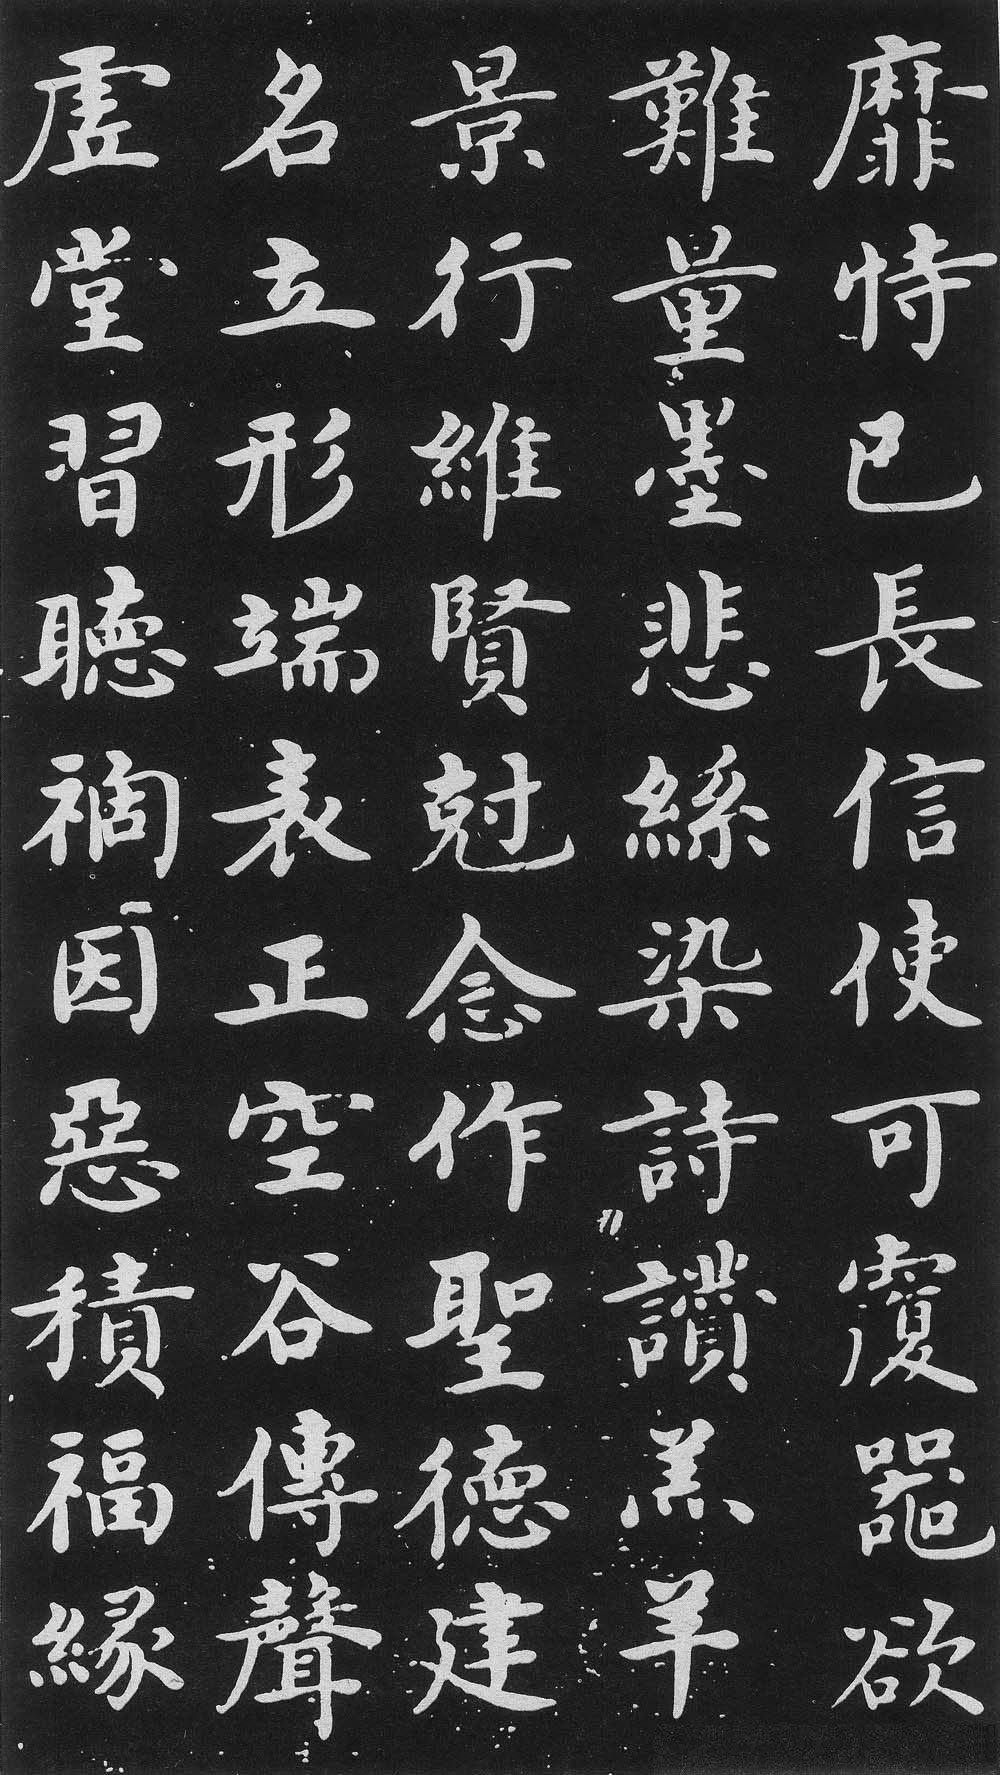 靡恃己長信使可覆器欲
難量墨悲絲染詩讚羔羊
景行維賢尅念作聖德建
名立形端表正空谷傳聲
虛堂習聽禍因惡積福緣